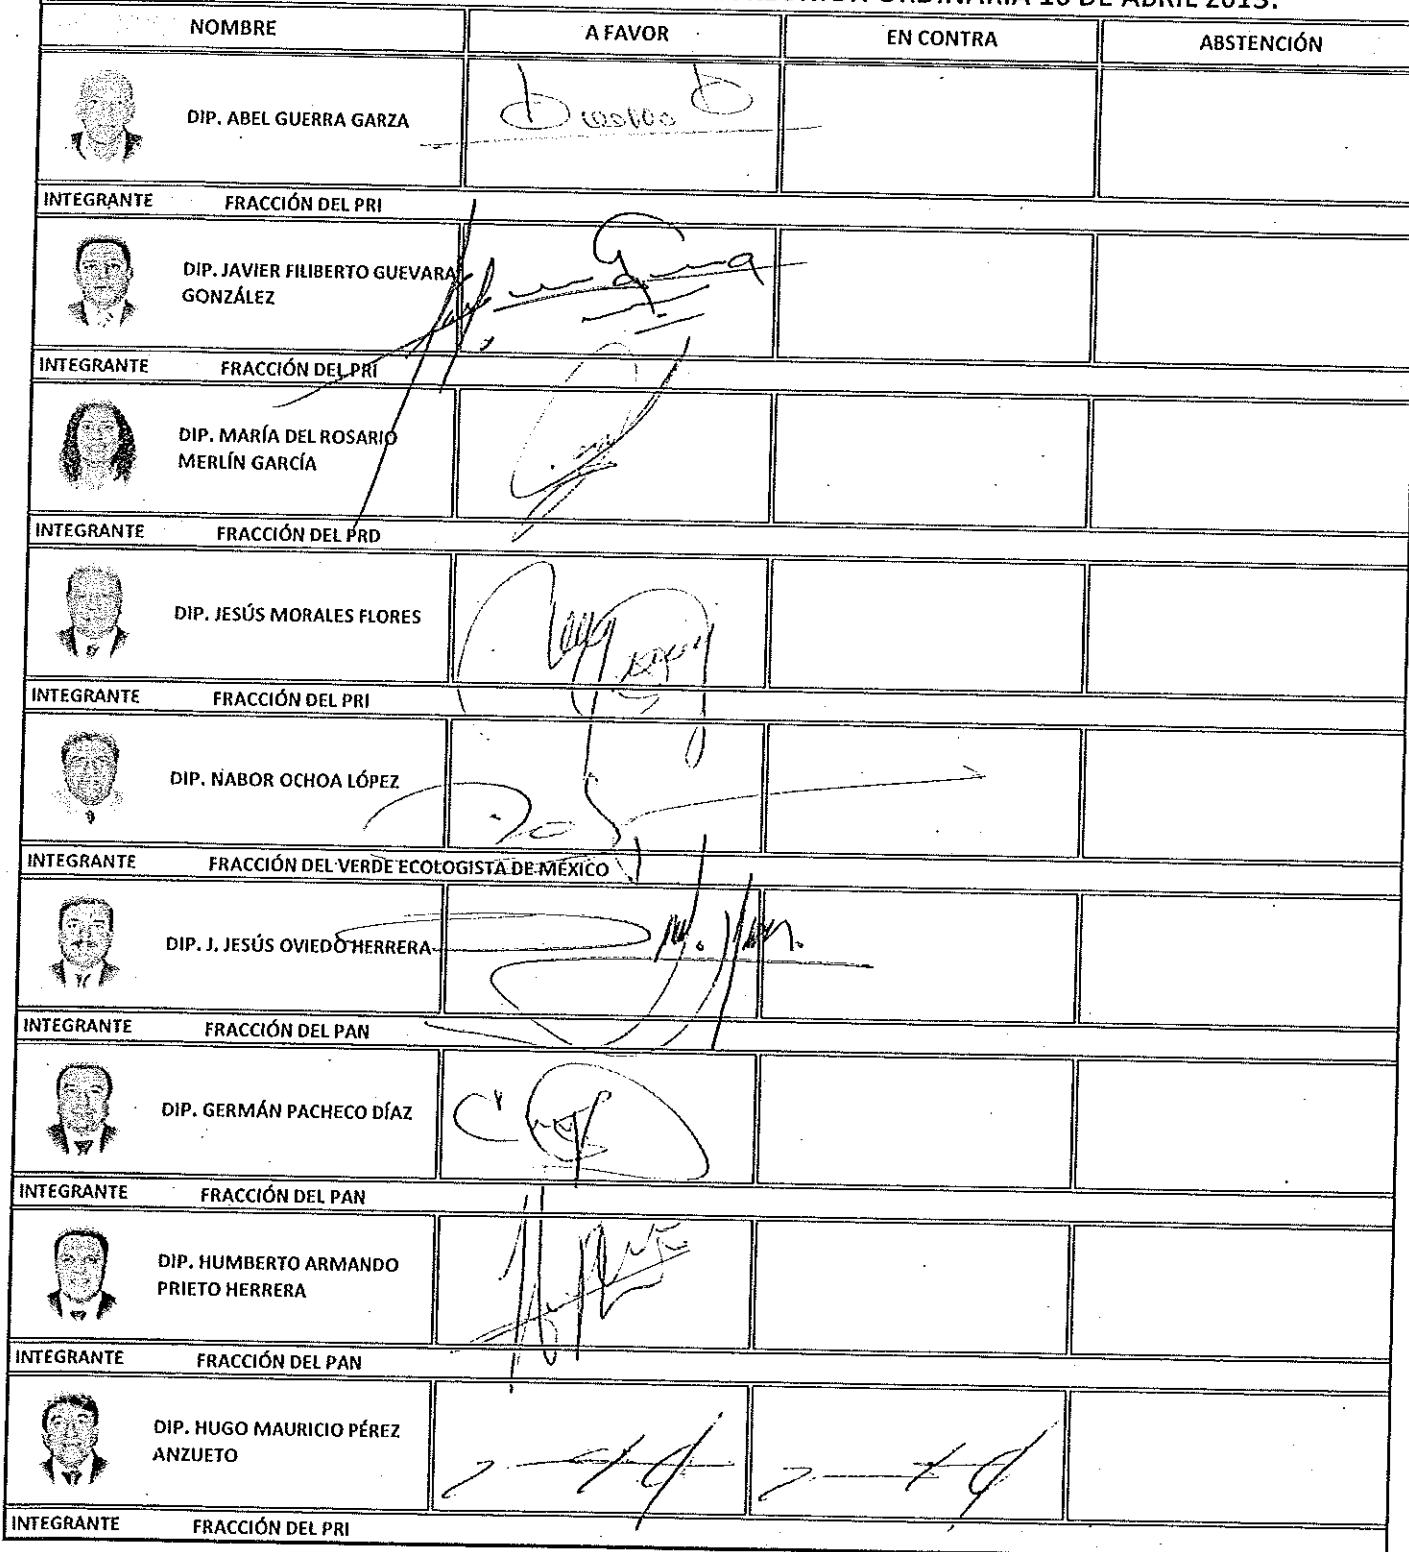 ORDINARIA 16 DE ABRIL 2013.
NOMBRE A FAVOR EN CONTRA ABSTENCIÓN
DIP. ABEL GUERRA GARZA
INTEGRANTE FRACCIÓN DEL PRI
DIP. JAVIER FILIBERTO GUEVARA
GONZÁLEZ
INTEGRANTE FRACCIÓN DEL PRI
DIP. MARÍA DEL ROSARIO
MERLÍN GARCÍA
INTEGRANTE FRACCIÓN DEL PRD
DIP. JESÚS MORALES FLORES
INTEGRANTE FRACCIÓN DEL PRI
DIP. NABOR OCHOA LÓPEZ
INTEGRANTE FRACCIÓN DEL VERDE ECOLOGISTA DE MÉXICO
DIP. J. JESÚS OVIEDO HERRERA
INTEGRANTE FRACCIÓN DEL PAN
DIP. GERMÁN PACHECO DÍAZ
INTEGRANTE FRACCIÓN DEL PAN
DIP. HUMBERTO ARMANDO
PRIETO HERRERA
INTEGRANTE FRACCIÓN DEL PAN
DIP. HUGO MAURICIO PÉREZ
ANZUETO
INTEGRANTE FRACCIÓN DEL PRI